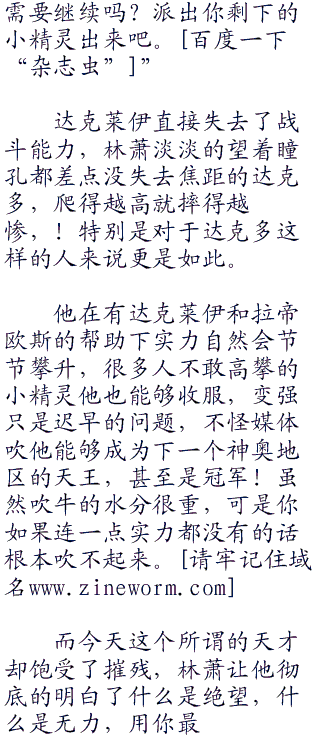 需要继续吗？派出你剩下的
小精灵出来吧。[百度一下
“杂志虫”]”
达克莱伊直接失去了战
斗能力，林萧淡淡的望着瞳
孔都差点没失去焦距的达克
多，爬得越高就摔得越
惨，！特别是对于达克多这
样的人来说更是如此。
他在有达克莱伊和拉帝
欧斯的帮助下实力自然会节
节攀升，很多人不敢高攀的
小精灵他也能够收服，变强
只是迟早的问题，不怪媒体
吹他能够成为下一个神奥地
区的天王，甚至是冠军！虽
然吹牛的水分很重，可是你
如果连一点实力都没有的话
根本吹不起来。[请牢记住域
名www.zineworm.com]
而今天这个所谓的天才
却饱受了摧残，林萧让他彻
底的明白了什么是绝望，什
么是无力，用你最